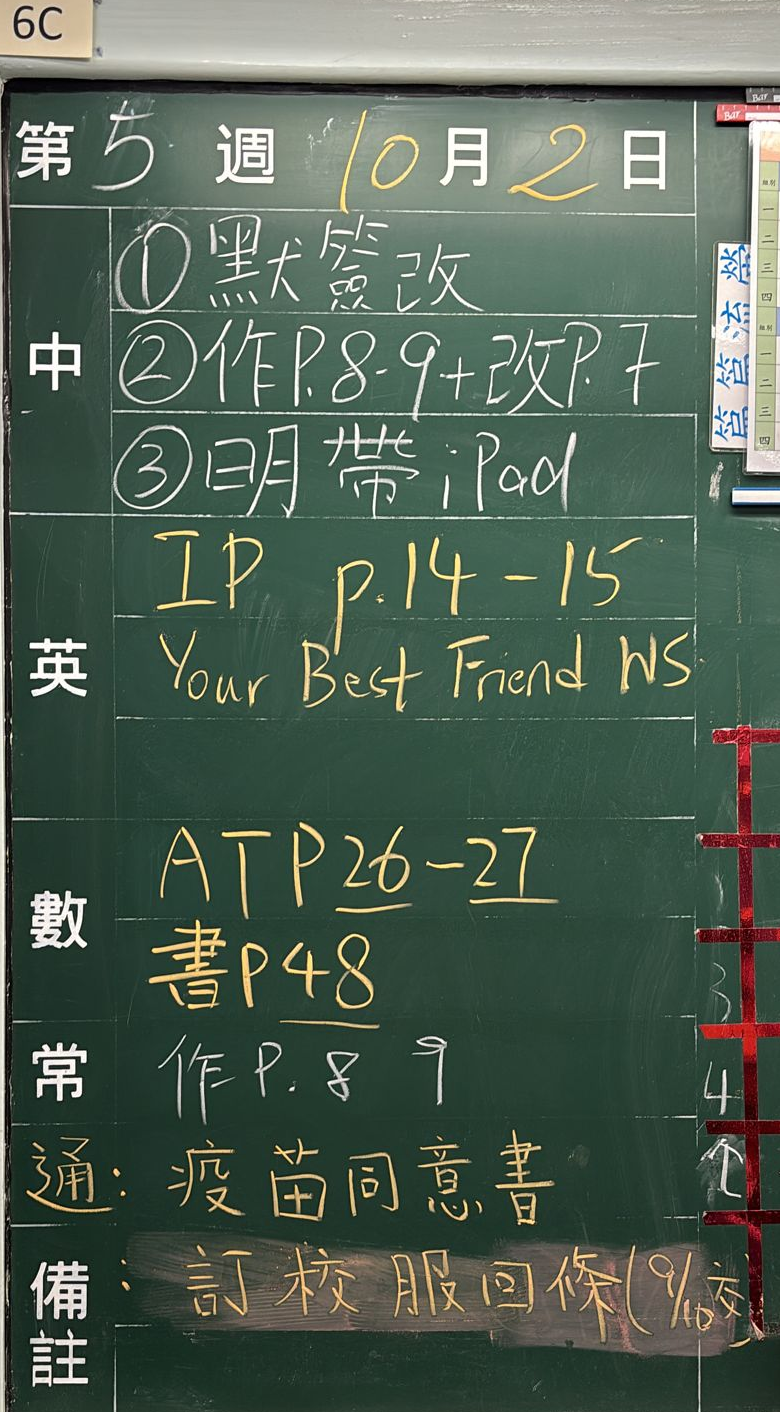 6C
第5週 10月2日
中
①默簽改
②作P.8-9+改P.7
③明帶iPad
英
IP p.14-15
Your Best Friend WS
數
ATP26-27
書P48
常
作P.8 9
通: 疫苗同意書
備註: 訂校服回條(9/10交)
3
4
Bar
Bar
組別
一
二
三
四
組別
一
二
三
四